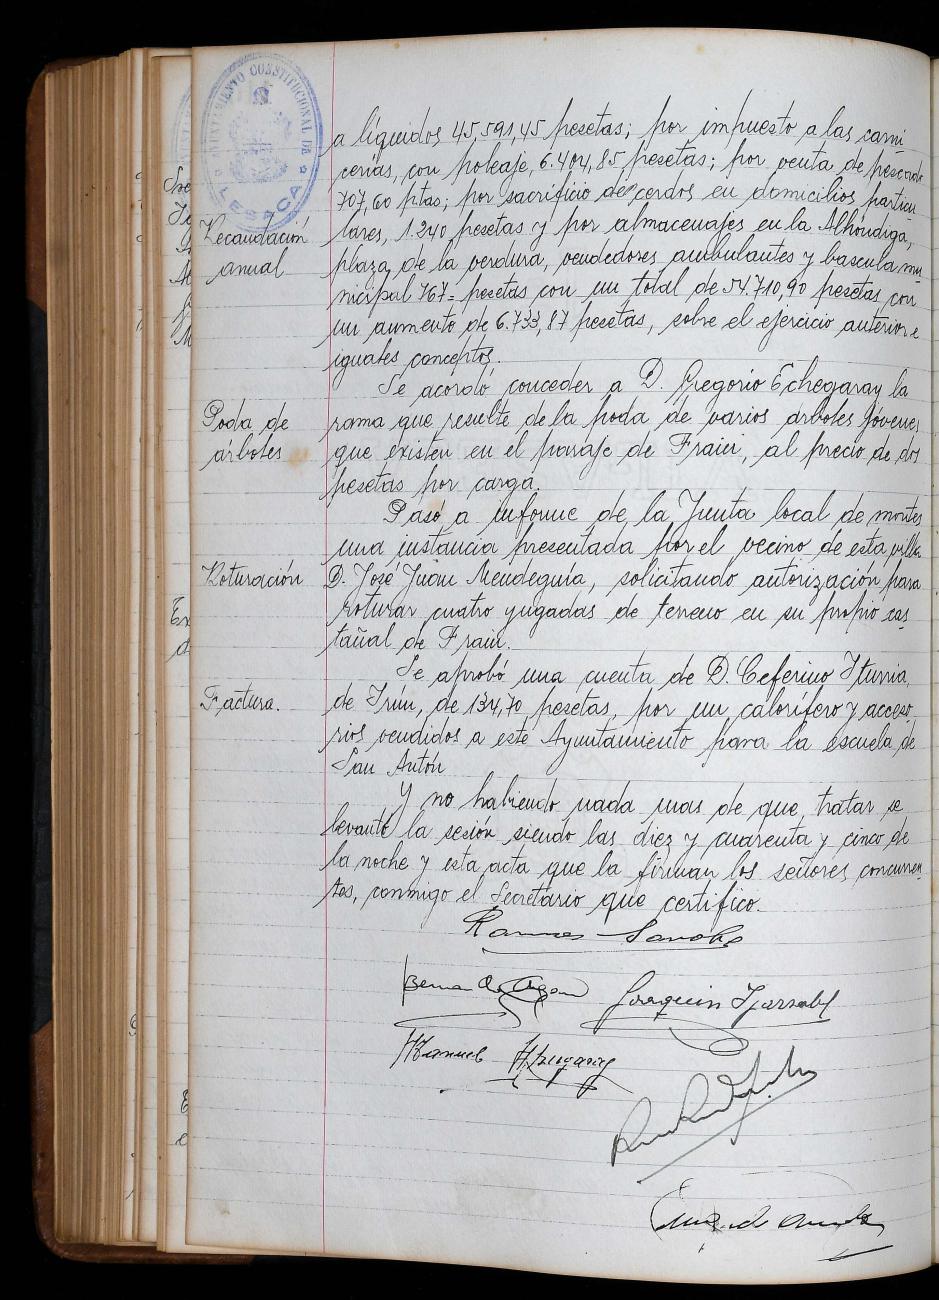 AYUNTAMIENTO CONSTITUCIONAL DE
LESACA
a líquidos 45.591,45 pesetas; por impuesto a las carni
cerías, con poteaje, 6.404,85 pesetas; por venta de pescado
707,60 ptas; por sacrificio de cerdos en domicilios particu
Recaudación
anual
lares, 1.240 pesetas y por almacenajes en la Alhóndiga,
plaza de la verdura, vendedores ambulantes y bascula mu
nicipal 767= pesetas con un total de 54.710,90 pesetas con
un aumento de 6.733,87 pesetas, sobre el ejercicio anterior e
iguales conceptos.
Se acordó conceder a D. Gregorio Echegaray la
Poda de
árboles
rama que resulte de la poda de varios árboles jóvenes
que existen en el paraje de Frain, al precio de dos
pesetas por carga.
Pasó a informe de la Junta local de montes
una instancia presentada por el vecino de esta villa
Roturación
D. José Juan Mendeguía, solicitando autorización para
roturar cuatro yugadas de terreno en su propio cas
tañal de Frain.
Se aprobó una cuenta de D. Ceferino Iturria,
Factura.
de Irún, de 134,70 pesetas, por un calorífero y acceso
rios vendidos a este Ayuntamiento para la escuela de
San Antón
Y no habiendo nada mas de que tratar se
levantó la sesión siendo las diez y cuarenta y cinco de
la noche y esta acta que la firman los señores concurren
tes, conmigo el Secretario que certifico.
Joaquin
Manuel